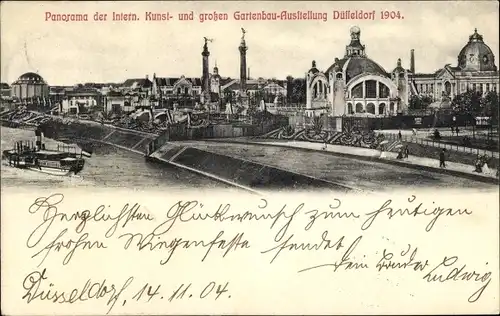 Panorama der Intern. Kunst- und großen Gartenbau-Ausstellung Düsseldorf 1904.
Herzlichsten Glückwunsch zum heutigen
frohen Wiegenfeste sendet
Dein Bruder Ludwig
Düsseldorf 14.11.04.